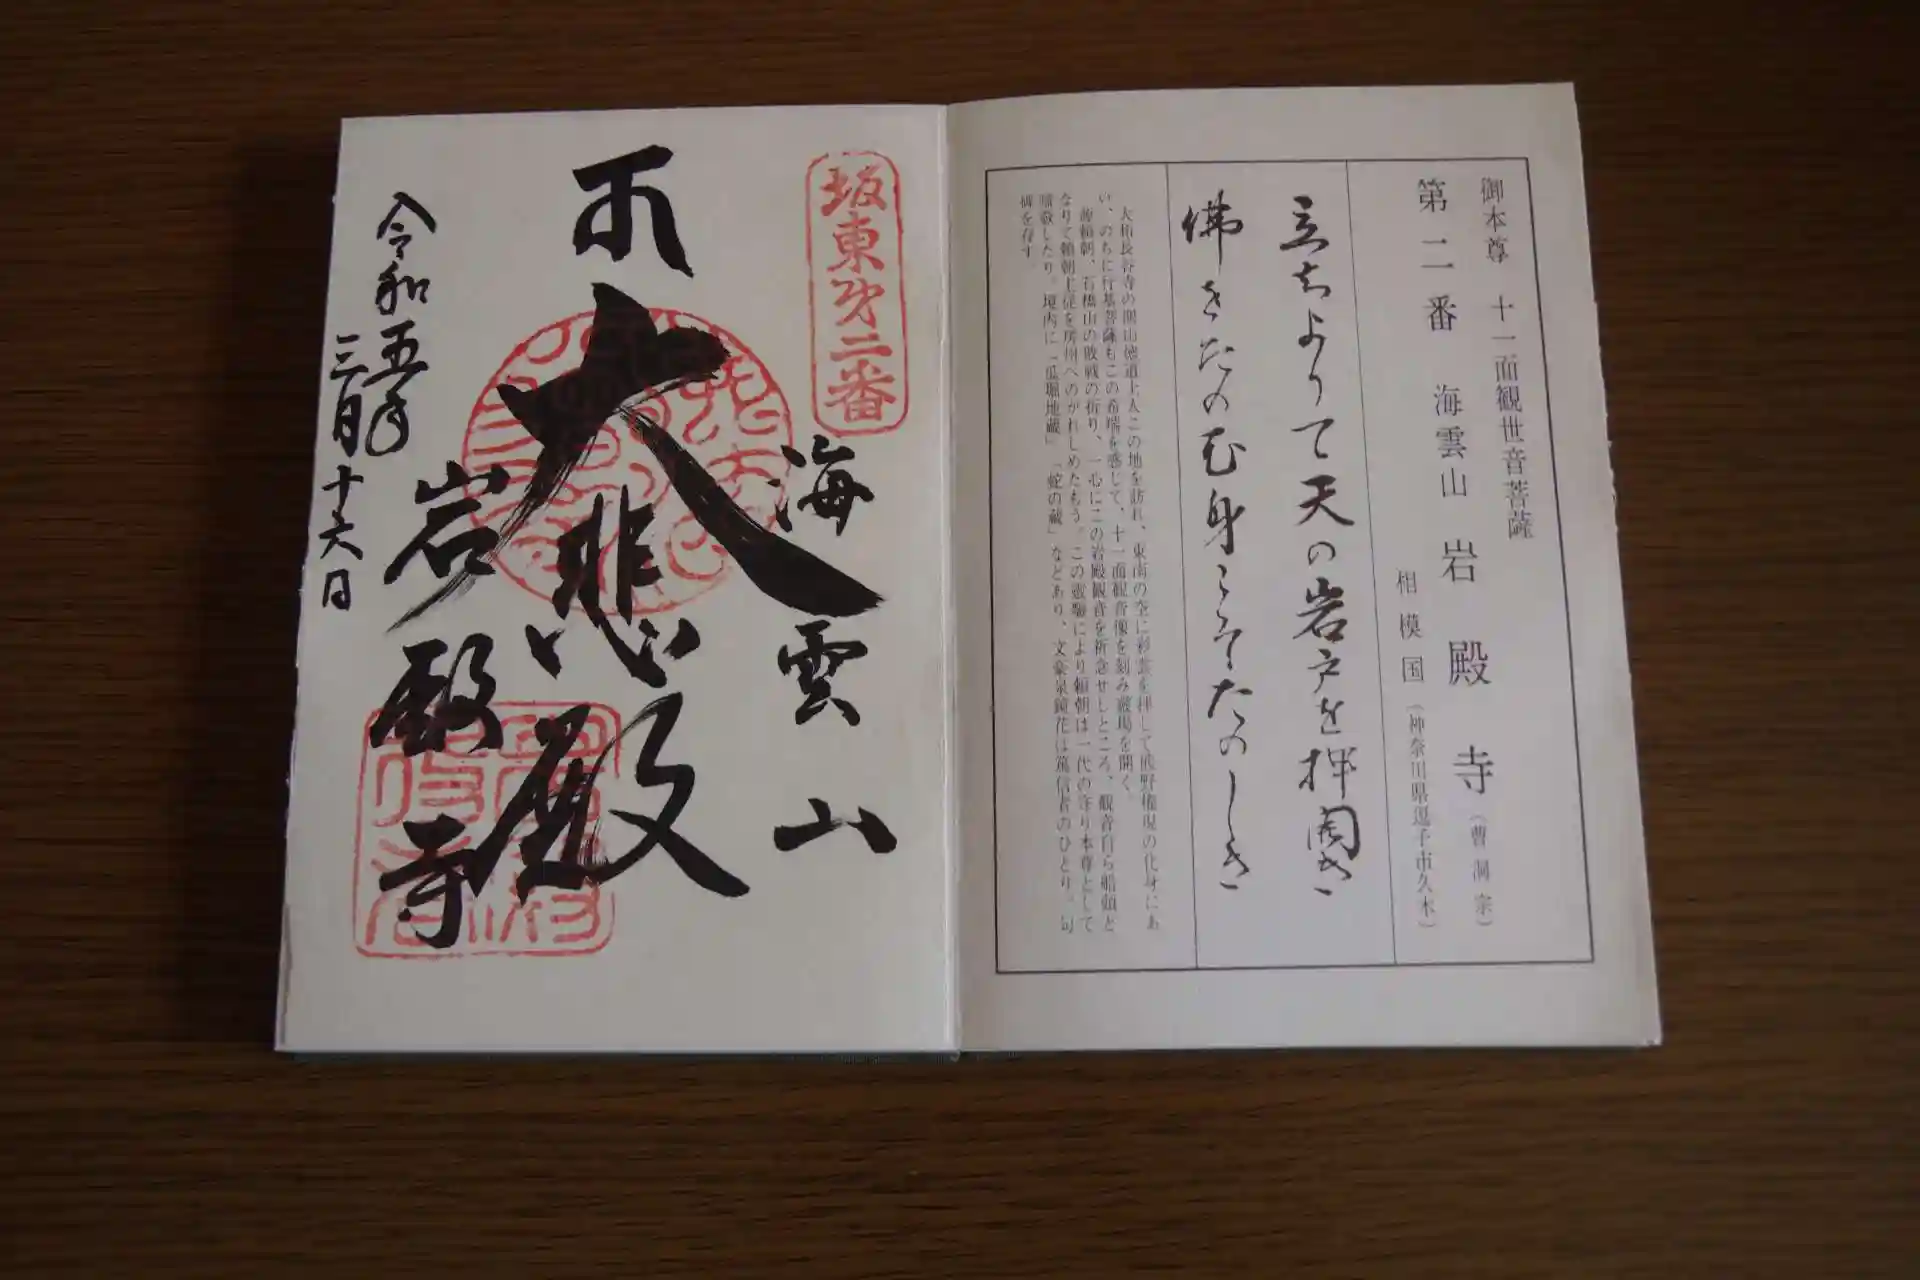 御本尊 十一面観世音菩薩
第二番 海雲山 岩殿寺（曹洞宗）
相模国（神奈川県逗子市久木）
立ちよりて天の岩戸を押開き
佛をたのむ身こそたのしき
大和長谷寺の開山徳道上人この地を訪れ、東南の空に彩雲を拝して熊野権現の化身にあ
い、のちに行基菩薩もこの希瑞を感じて、十一面観音像を刻み霊場を開く。
源頼朝、石橋山の敗戦の折り、一心にこの岩殿観音を祈念せしところ、観音自ら船頭と
なりて頼朝主従を房州へのがれしめたもう。この霊験により頼朝は一代の守り本尊として
崇敬したり。境内に「瓜堀地蔵」「蛇の蔵」などあり、文豪泉鏡花は篤信者のひとり。句
碑を存す。
坂東第二番
海雲山
大悲殿
岩殿寺
令和五年
三月十六日